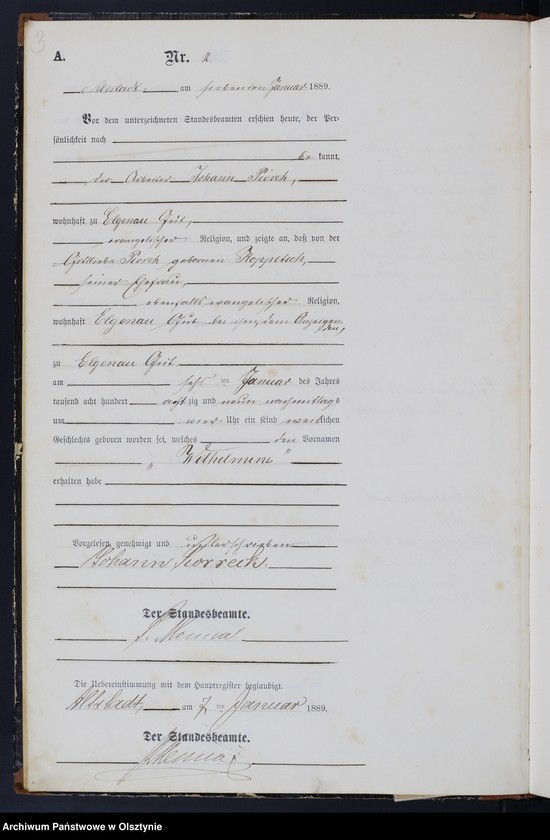 3
A. Nr. 2
Altstadt am siebenten Januar 1889.
Vor dem unterzeichneten Standesbeamten erschien heute, der Per-
sönlichkeit nach
be kannt,
der Arbeiter Johann
wohnhaft zu Elgenau Gut,
evangelischer Religion, und zeigte an, daß von der
geborenen
seiner Ehefrau,
ebenfalls evangelischer Religion,
wohnhaft Elgenau Gut bei dem Anzeigen-
den,
zu Elgenau Gut
am sechs ten Januar des Jahres
tausend acht hundert acht zig und neun nachmittags
um vier Uhr ein Kind weiblichen
Geschlechts geboren worden sei, welches den Vornamen
„Wilhelmine"
erhalten habe
Vorgelesen, genehmigt und unterschrieben
Johann
Der Standesbeamte.
Die Uebereinstimmung mit dem Hauptregister beglaubigt.
Altstadt, am 7 ten Januar 1889.
Der Standesbeamte.
Archiwum Państwowe w Olsztynie